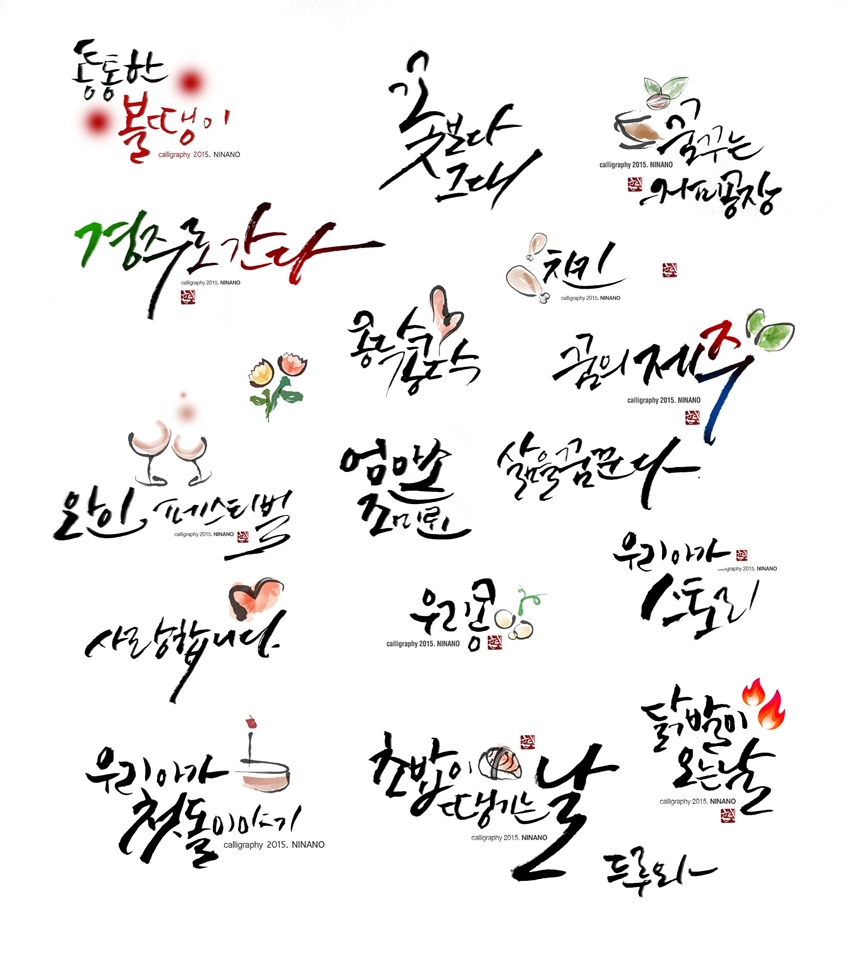 통통한
볼땡이
calligraphy 2015. NINANO
꽃보다
그대
꿈꾸는
calligraphy 2015. NINANO
커피공장
경주로 간다
calligraphy 2015. NINANO
치킨
calligraphy 2015. NINANO
꿈의 제주
calligraphy 2015. NINANO
와인 페스티벌
calligraphy 2015. NINANO
조미료
삶을 꿈꾼다
우리아가
calligraphy 2015. NINANO
스토리
사랑합니다.
우리콩
calligraphy 2015. NINANO
닭발이
오는날
calligraphy 2015. NINANO
우리아가
첫돌이야기
calligraphy 2015. NINANO
초밥이
땡기는 날
calligraphy 2015. NINANO
드루와~